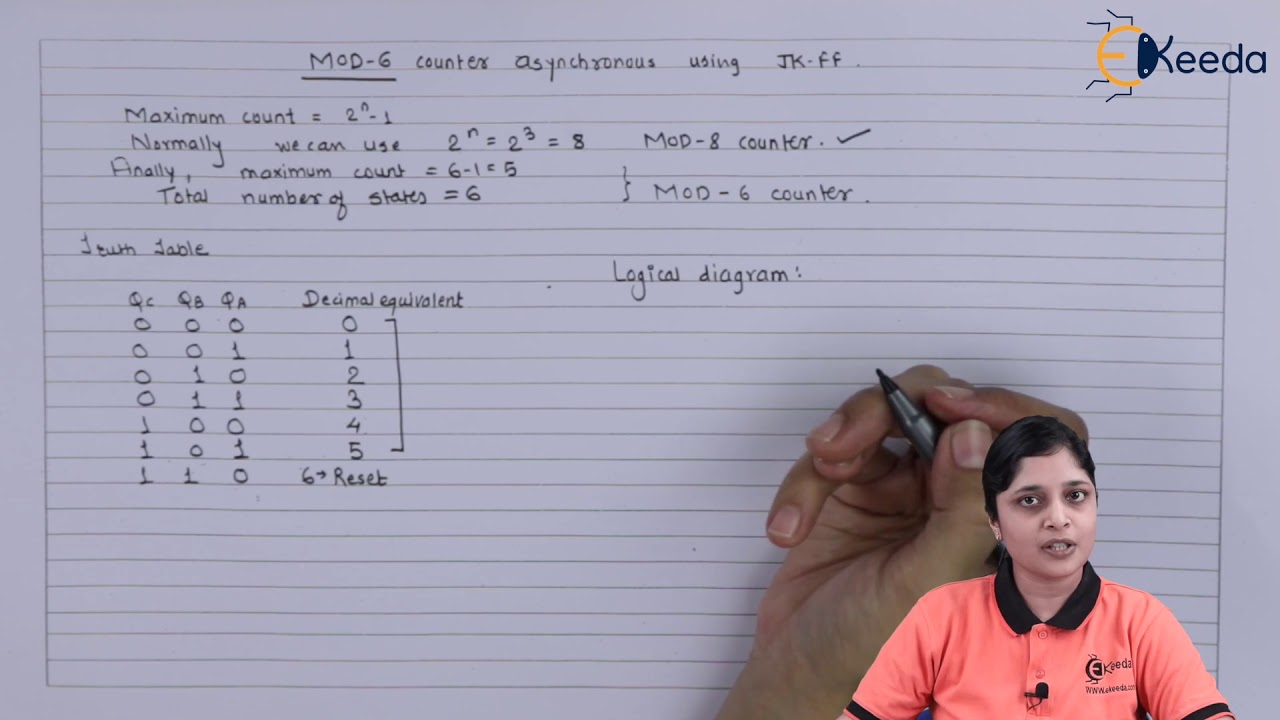 EKeeda
MOD-6 counter asynchronous using JK-FF.
Maximum count = 2ⁿ-1
Normally we can use 2ⁿ = 2³ = 8 MOD-8 counter. ✓
Finally, maximum count = 6-1 = 5
Total number of states = 6 } MOD-6 counter.
Truth Table
Logical diagram:
QC QB QA Decimal equivalent
0 0 0 0
0 0 1 1
0 1 0 2
0 1 1 3
1 0 0 4
1 0 1 5
1 1 0 6→ Reset
EKeeda
www.ekeeda.com